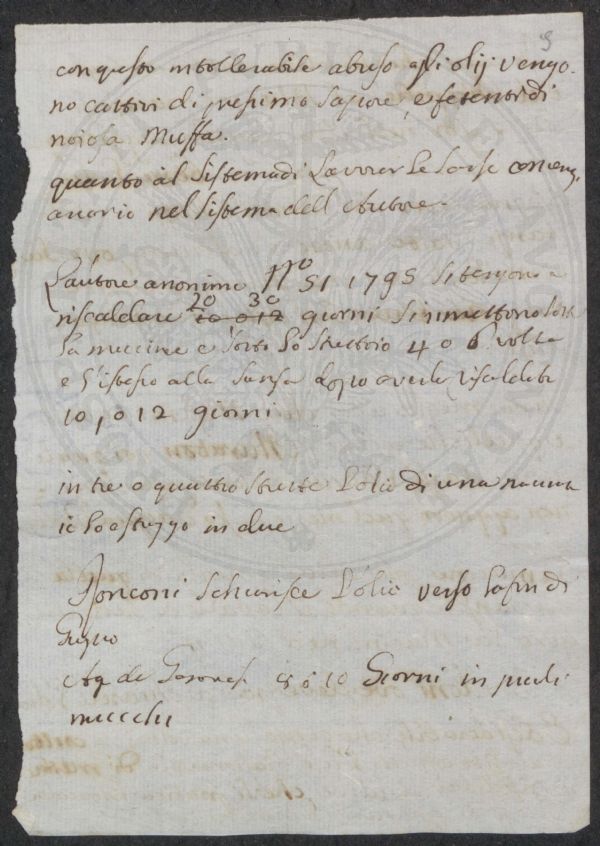 9
con questo intollerabile abuso gli olij vengo-
no cattivi di pessimo sapore, e fetenti di
noiosa Muffa.
quanto al Sistema di Lavorar le Sanse
nel Sistema dell Autore.
L'autore anonimo 51 1795 si tengono a
20 30
riscaldare 10 o 12 giorni si rimettono sott
la macine e sotto lo strettoio 4 o 6 volte
e l'istesso alla Sansa dopo averle riscaldate
10, o 12 giorni
in tre o quattro strette L'olio di una
io lo estraggo in due
Ronconi Schiarisce L'olio verso la fin di
Giugno
8 o 10 Giorni in piccoli
mucchi